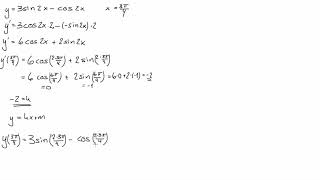 y = 3sin2x - cos2x   x = 3π/4
y' = 3cos2x·2 - (-sin2x)·2
y' = 6cos2x + 2sin2x
y'(3π/4) = 6cos(2·3π/4) + 2sin(2·3π/4)
= 6cos(6π/4) + 2sin(6π/4) = 6·0 + 2·(-1) = -2
=0   =-1
-2 = k
y = kx + m
y(3π/4) = 3sin(2·3π/4) - cos(2·3π/4)